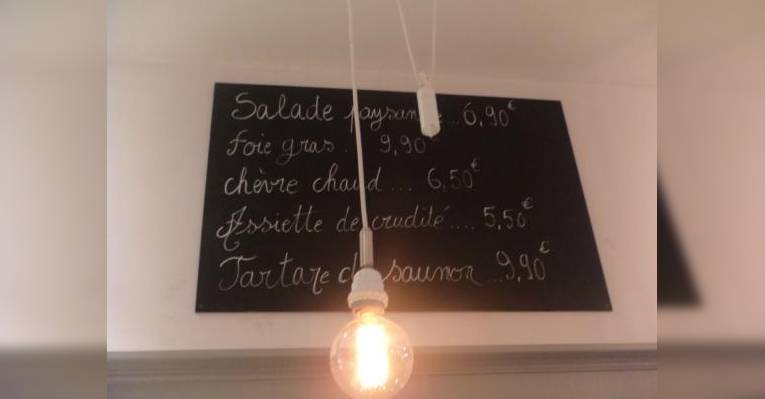 Salade paysanne... 6,90€
foie gras... 9,90€
chèvre chaud... 6,50€
Assiette de crudité.... 5,50€
Tartare de saumon... 9,90€